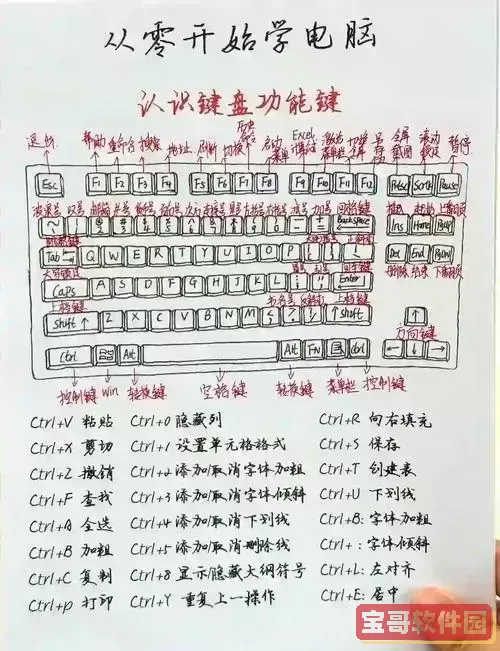 从零开始学电脑
认识键盘功能键
退出 帮助 重命名 搜索 地址 刷新 切换 启动菜单 Excel 激活菜单栏 切换全屏 全屏截图 滚动锁定 暂停
Esc F1 F2 F3 F4 F5 F6 F7 F8 F9 F10 F11 F12 Prtsc Scrlk Pause
Backspace Ins Home PgUp
Tab Q W E R T Y U I O P Del End PgDn
删除 结束 下翻页
Caps A S D F G H J K L Enter
上档键 上档键
Shift ↑ Z X C V B N M ↑ Shift ↑
方向键
Ctrl Alt Alt FN Ctrl ← ↓ →
控制键 win 转换键 空格键 转换键 菜单栏 控制键
Ctrl+V 粘贴 Ctrl+0 隐藏列 Ctrl+R 向右填充
Ctrl+X 剪切 Ctrl+1 设置单元格格式 Ctrl+S 保存
Ctrl+Z 撤销 Ctrl+2 添加/取消字体加粗 Ctrl+T 创建表
Ctrl+F 查找 Ctrl+3 添加/取消字体倾斜 Ctrl+U 下划线
Ctrl+A 全选 Ctrl+4 添加/取消下划线 Ctrl+B: 字体加粗
Ctrl+B 加粗 Ctrl+5 添加/取消删除线 Ctrl+ : 字体倾斜
Ctrl+C 复制 Ctrl+8 显示隐藏大纲符号 Ctrl+L: 左对齐
Ctrl+P 打印 Ctrl+Y 重复上一操作 Ctrl+E: 居中
宝哥软件园